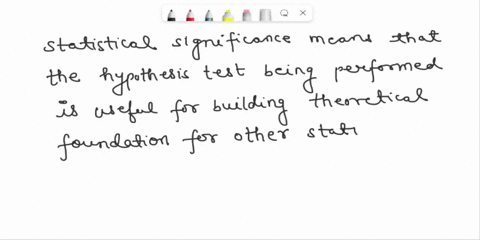 statistical significance means that
the hypothesis test being performed
is useful for building theoretical
foundation for other stati